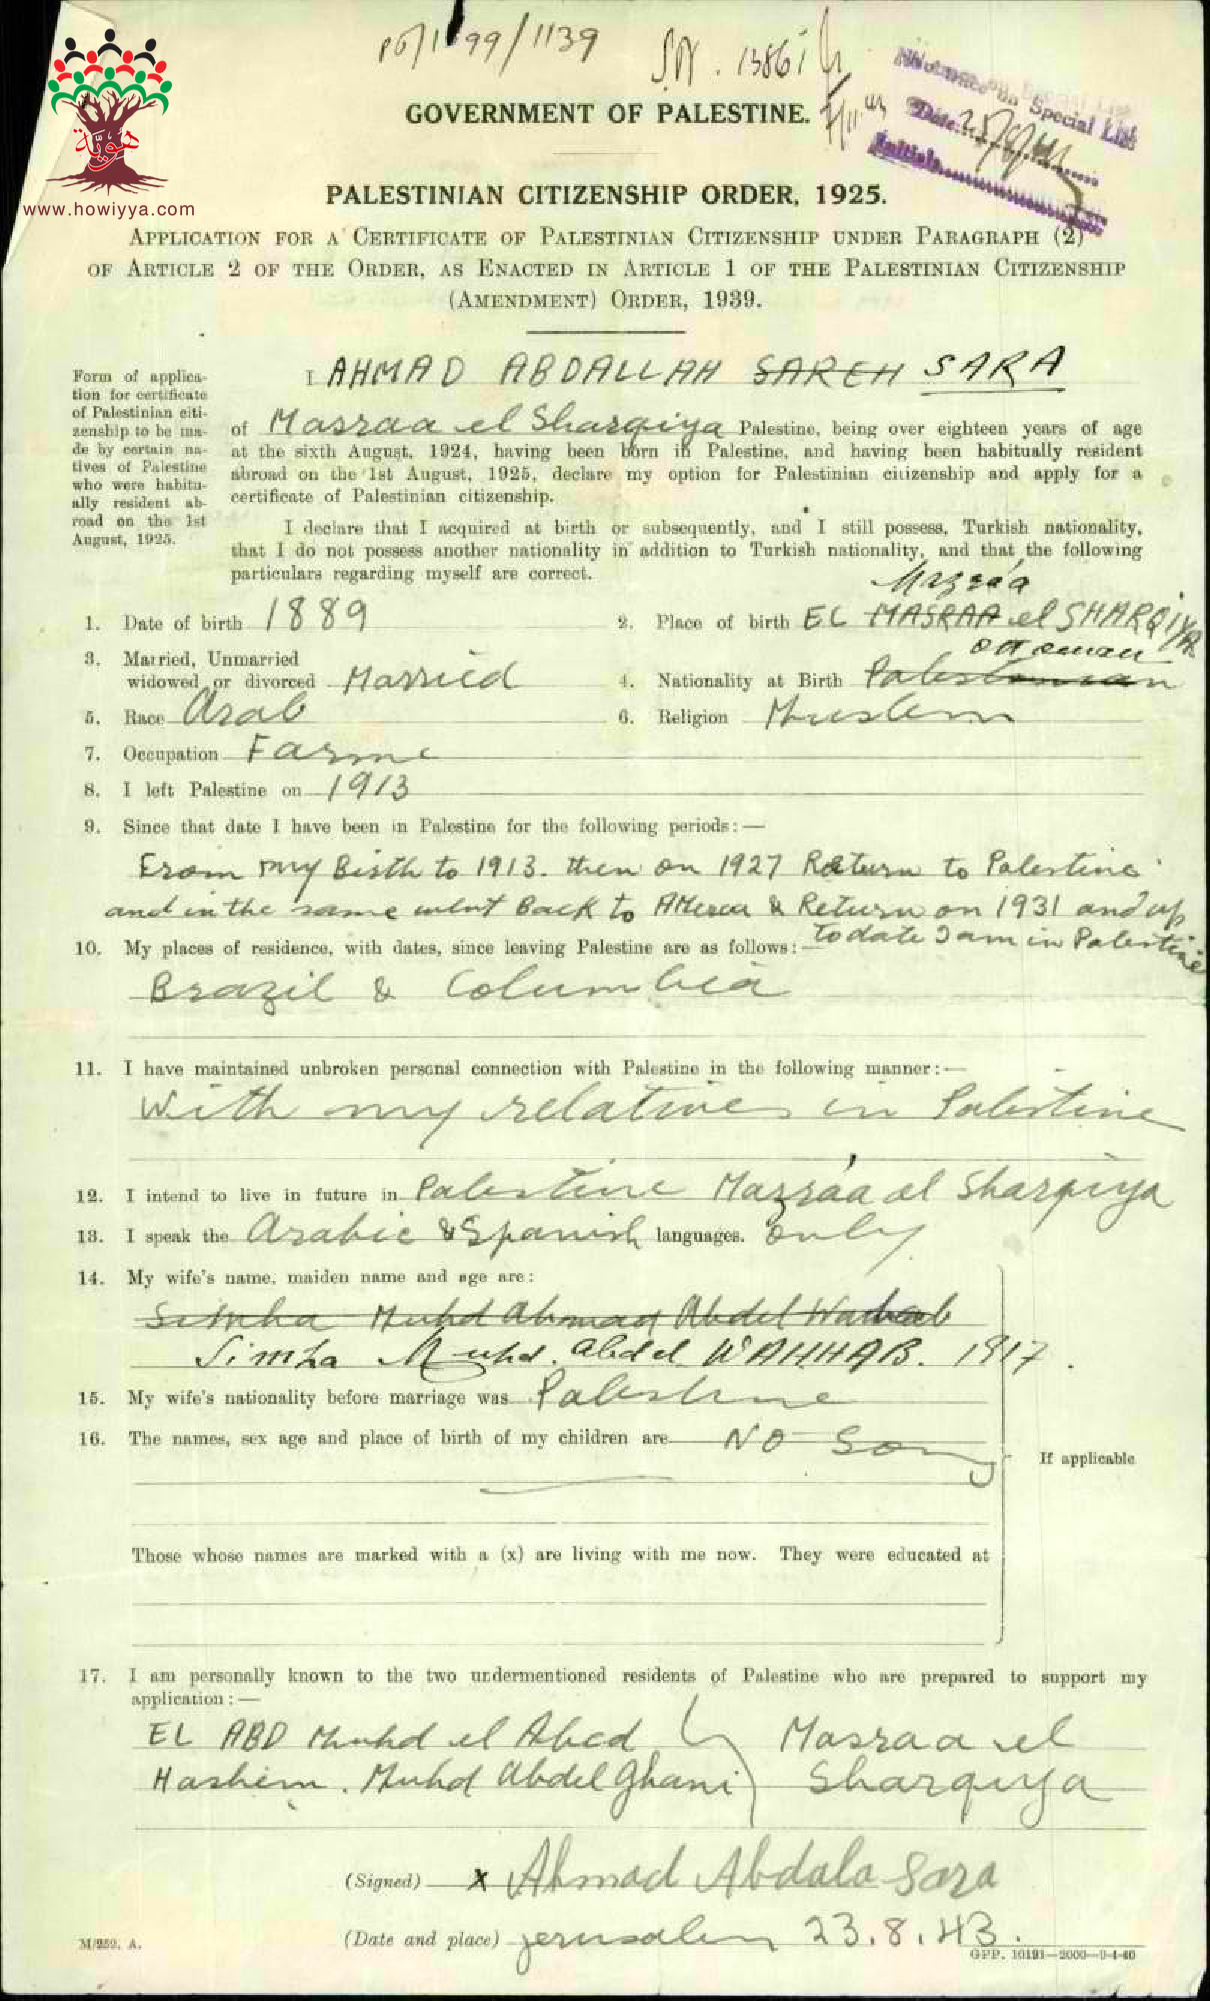 هوية
www.howiyya.com
1139
GOVERNMENT OF PALESTINE.
on Special List
Date
Initials
PALESTINIAN CITIZENSHIP ORDER, 1925.
APPLICATION FOR A CERTIFICATE OF PALESTINIAN CITIZENSHIP UNDER PARAGRAPH (2)
OF ARTICLE 2 OF THE ORDER, AS ENACTED IN ARTICLE 1 OF THE PALESTINIAN CITIZENSHIP
(AMENDMENT) ORDER, 1939.
Form of applica-
tion for certificate
of Palestinian citi-
zenship to be ma-
de by certain na-
tives of Palestine
who were habitu-
ally resident ab-
road on the 1st
August, 1925.
I AHMAD ABDALLAH SAREH SARA
of Masraa el Sharqiya Palestine, being over eighteen years of age
at the sixth August, 1924, having been born in Palestine, and having been habitually resident
abroad on the 1st August, 1925, declare my option for Palestinian citizenship and apply for a
certificate of Palestinian citizenship.
I declare that I acquired at birth or subsequently, and I still possess, Turkish nationality,
that I do not possess another nationality in addition to Turkish nationality, and that the following
particulars regarding myself are correct.
Mazra'a
1. Date of birth 1889
2. Place of birth EL MASRAA el SHARQIYA
3. Married, Unmarried
widowed or divorced Married
ottoman
4. Nationality at Birth Palestinian
5. Race Arab
6. Religion Muslem
7. Occupation Farme
8. I left Palestine on 1913
9. Since that date I have been in Palestine for the following periods:—
From my Birth to 1913. then on 1927 Return to Palestine
and in the same went Back to America & Return on 1931 and up
to date I am in Palestine
10. My places of residence, with dates, since leaving Palestine are as follows:—
Brazil & Columbia
11. I have maintained unbroken personal connection with Palestine in the following manner:—
With my relatives in Palestine
12. I intend to live in future in Palestine Mazra'a el Sharqiya
13. I speak the Arabic & Spanish languages. only
14. My wife's name, maiden name and age are:
Simha Muhd Ahmad Abdel Wahab
Simha Muhd. Abdel WAHHAB. 1917.
15. My wife's nationality before marriage was Palestine
16. The names, sex age and place of birth of my children are No Son
If applicable
Those whose names are marked with a (x) are living with me now. They were educated at
17. I am personally known to the two undermentioned residents of Palestine who are prepared to support my
application:—
EL ABD Muhd el Abed
Hashem. Muhd Abdel Ghani
Masraa el
Sharqiya
(Signed) x Ahmad Abdala Sara
(Date and place) Jerusalem 23.8.43.
M/259. A.
GPP. 10191—2000—9-4-40